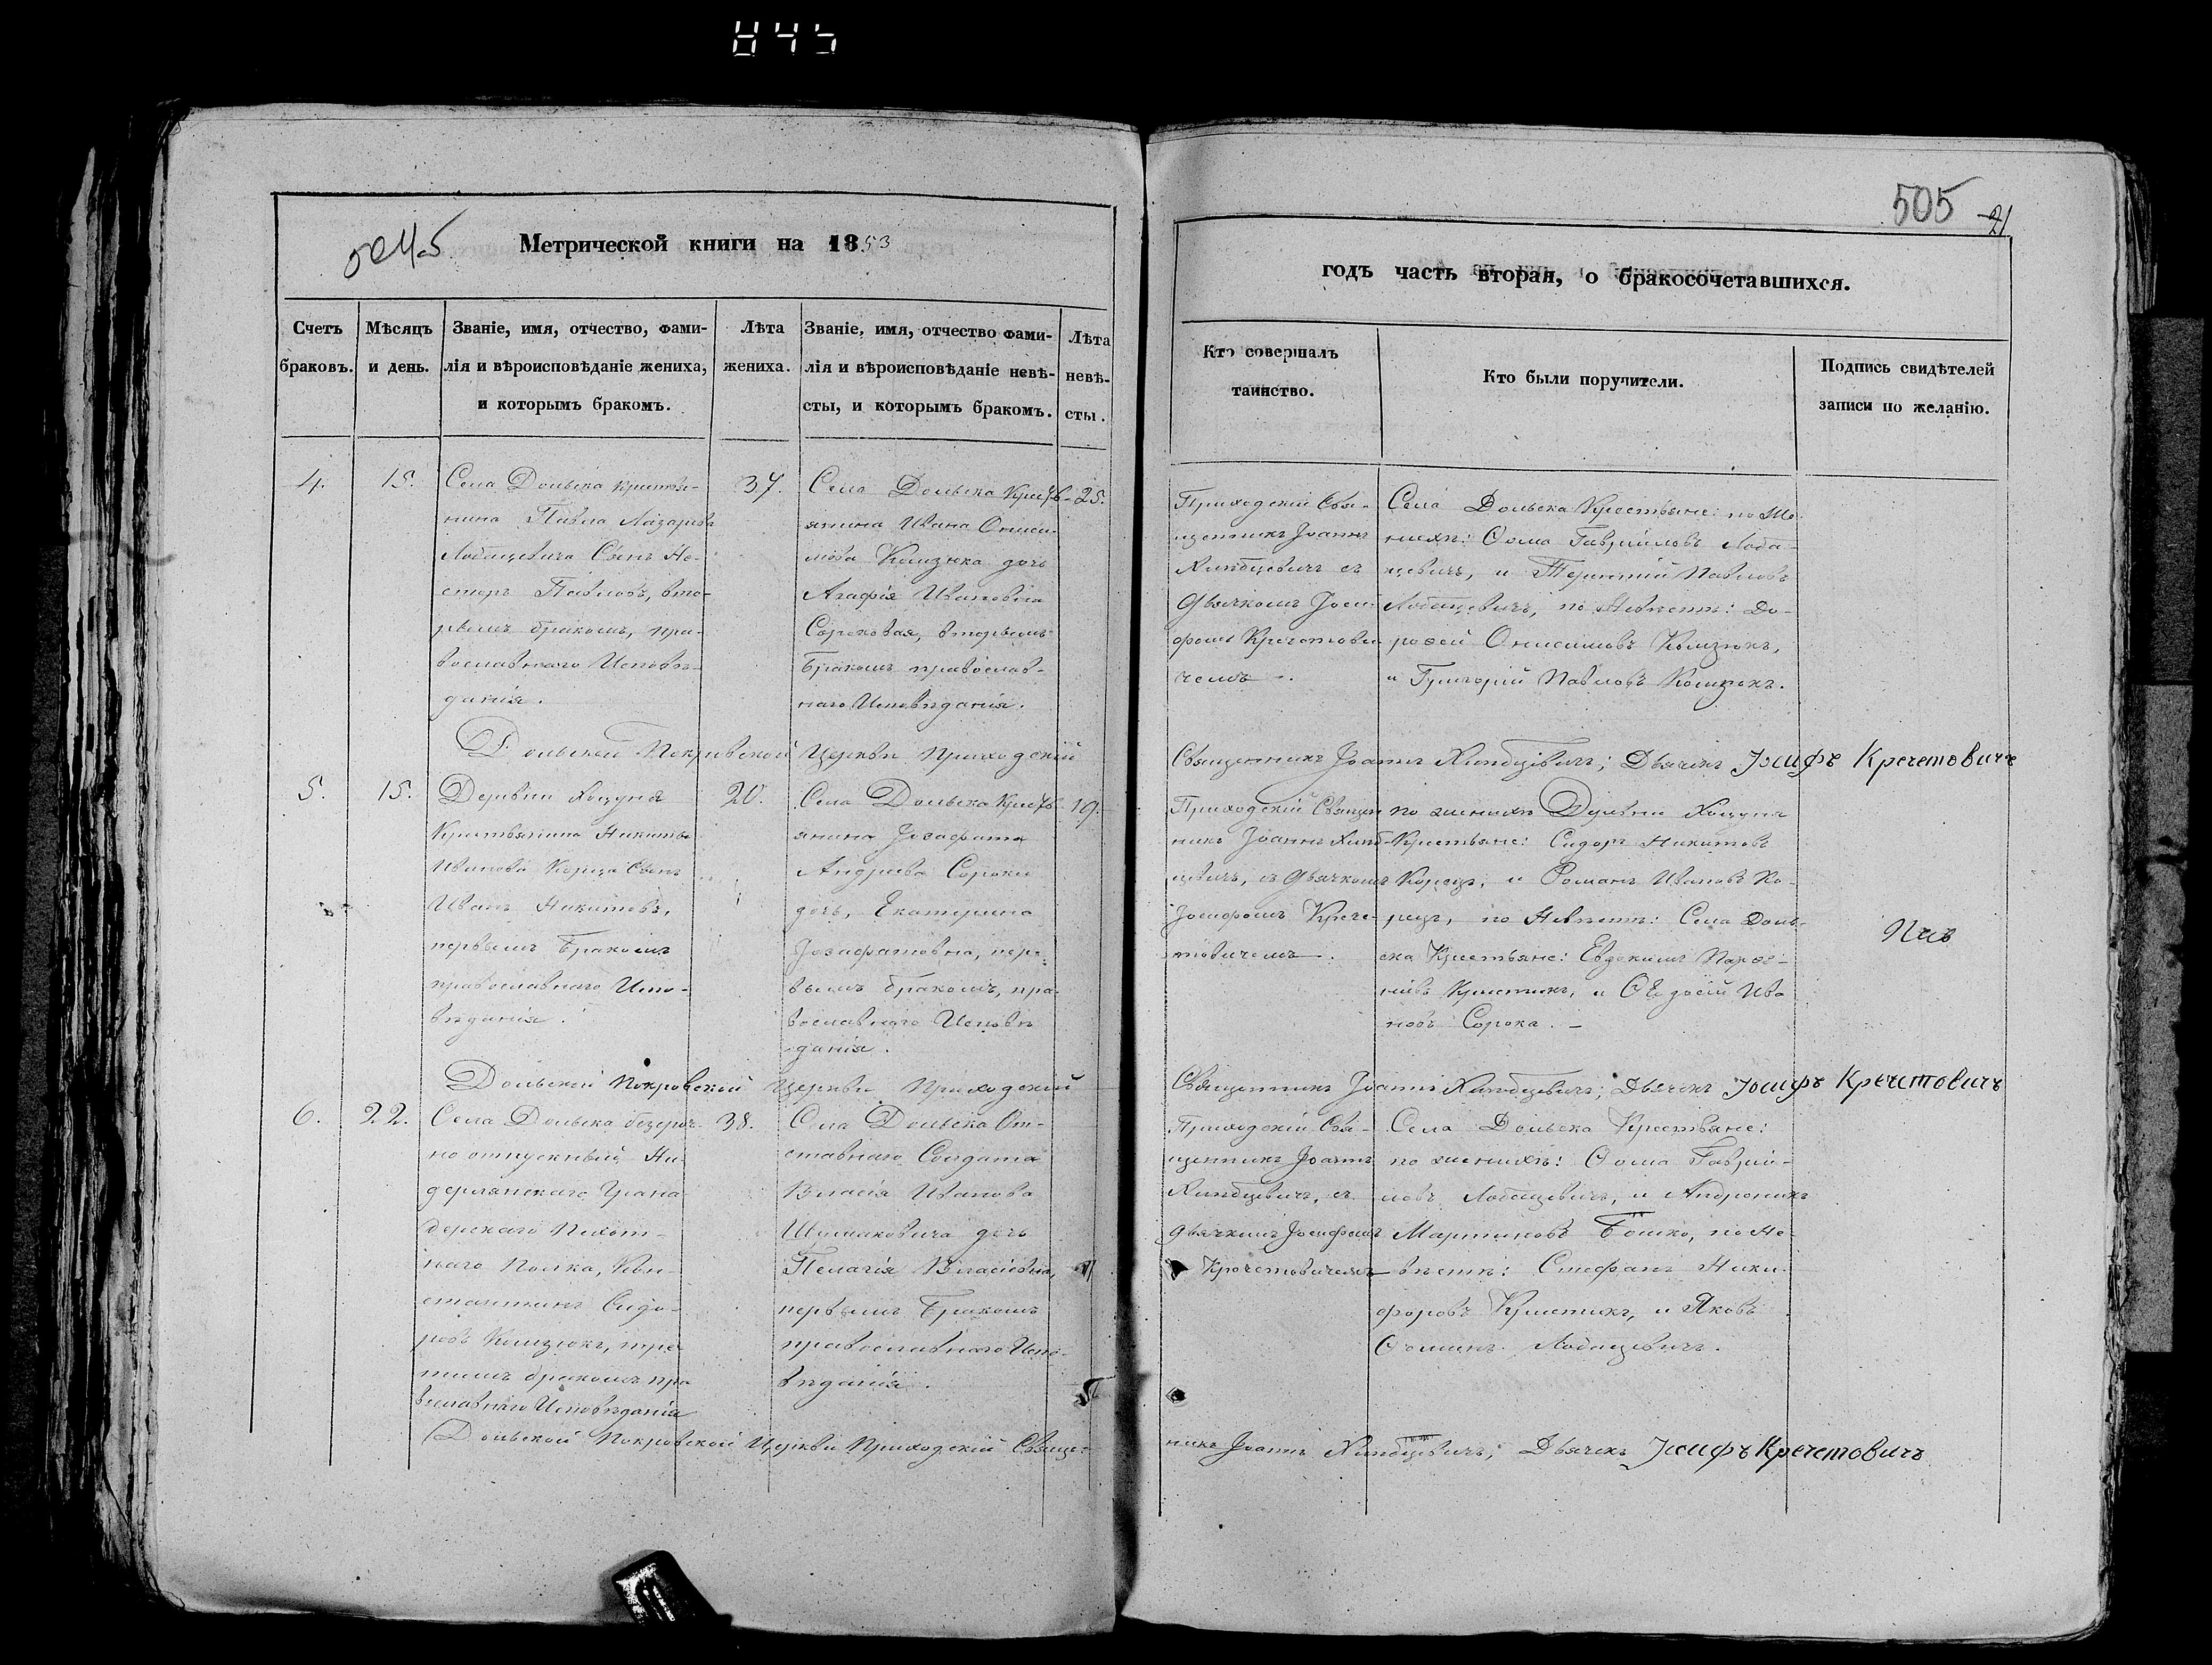 845
505
21
504об
Метрической книги на 1853
годъ часть вторая, о бракосочетавшихся.
Счетъ браковъ.
Мѣсяцъ и день.
Званіе, имя, отчество, фами-
лія и вѣроисповѣданіе жениха,
и которымъ бракомъ.
Лѣта
жениха.
Званіе, имя, отчество фами-
лія и вѣроисповѣданіе невѣ-
сты, и которымъ бракомъ.
Лѣта
невѣ-
сты.
Кто совершалъ
таинство.
Кто были поручители.
Подпись свидѣтелей
записи по желанію.
4.
15.
Села Дольска крестья-
нина Павла Лазарева
Лобацевича Сынъ Не-
сторъ Павловъ, вто-
рымъ бракомъ, пра-
вославнаго Исповѣ-
данія.
37.
Села Дольска Кресть-
янина Ивана Ониси-
мова Комзюка дочь
Агафія Ивановна
Сороковая, вторымъ
бракомъ православ-
наго Исповѣданія.
25.
Приходскій Свя-
щенникъ Іоаннъ
съ
Дьячкомъ Іоси-
фомъ Кречетови-
чемъ.
Села Дольска Крестьяне: по Же-
нихѣ: Ѳома Гавриловъ Лоба-
цевичъ, и Терентій Павловъ
Лобацевичъ, по Невѣстѣ: До-
роѳей Онисимовъ Комзюкъ,
и Григорій Павловъ Комзюкъ.
Дольской Покровской Церкви Приходскій
Священникъ Іоаннъ Дьячекъ Іосифъ Кречетовичъ
5.
15.
Деревни Хоцуня
Крестьянина Никиты
Иванова Корца Сынъ
Иванъ Никитовъ,
первымъ бракомъ
православнаго Испо-
вѣданія.
20.
Села Дольска Кресть-
янина Іозафата
Андреева Сороки
дочь, Екатерина
Іозафатовна, пер-
вымъ бракомъ, пра-
вославнаго Исповѣ-
данія.
19.
Приходскій Священ-
никъ Іоаннъ
съ Дьячкомъ
Іосифомъ Крече-
товичемъ.
по женихѣ Деревни Хоцуня
Крестьяне: Сидоръ Никитовъ
Корецъ, и Романъ Ивановъ Ко-
рецъ, по Невѣстѣ: Села Доль-
ска Крестьяне: Евдокимъ Парѳе-
новъ Крестикъ, и Ива-
новъ Сорока.
Дольской Покровской Церкви Приходскій
Священникъ Іоаннъ Дьячекъ Іосифъ Кречетовичъ
6.
22.
Села Дольска безсроч-
но отпускный, Ни-
дерлянскаго Грена-
дерскаго Пехот-
наго Полка, Кон-
стантинъ Сидо-
ровъ Комзюкъ, тре-
тимъ бракомъ пра-
вославнаго Исповѣданія
38.
Села Дольска От-
ставнаго Солдата
Власія Иванова
Шимановича дочь
Пелагія Власіевна,
первымъ бракомъ
православнаго Испо-
вѣданія.
Приходскій Свя-
щенникъ Іоаннъ
съ
Дьячкомъ Іосифомъ
Кречетовичемъ
Села Дольска Крестьяне:
по женихѣ: Ѳома Гаври-
ловъ Лобацевичъ, и Андроникъ
Мартиновъ Бошко, по Не-
вѣстѣ: Стефанъ Ники-
форовъ Крестикъ, и Яковъ
Ѳоминъ Лобацевичъ.
Дольской Покровской Церкви Приходскій Священ-
никъ Іоаннъ Дьячекъ Іосифъ Кречетовичъ